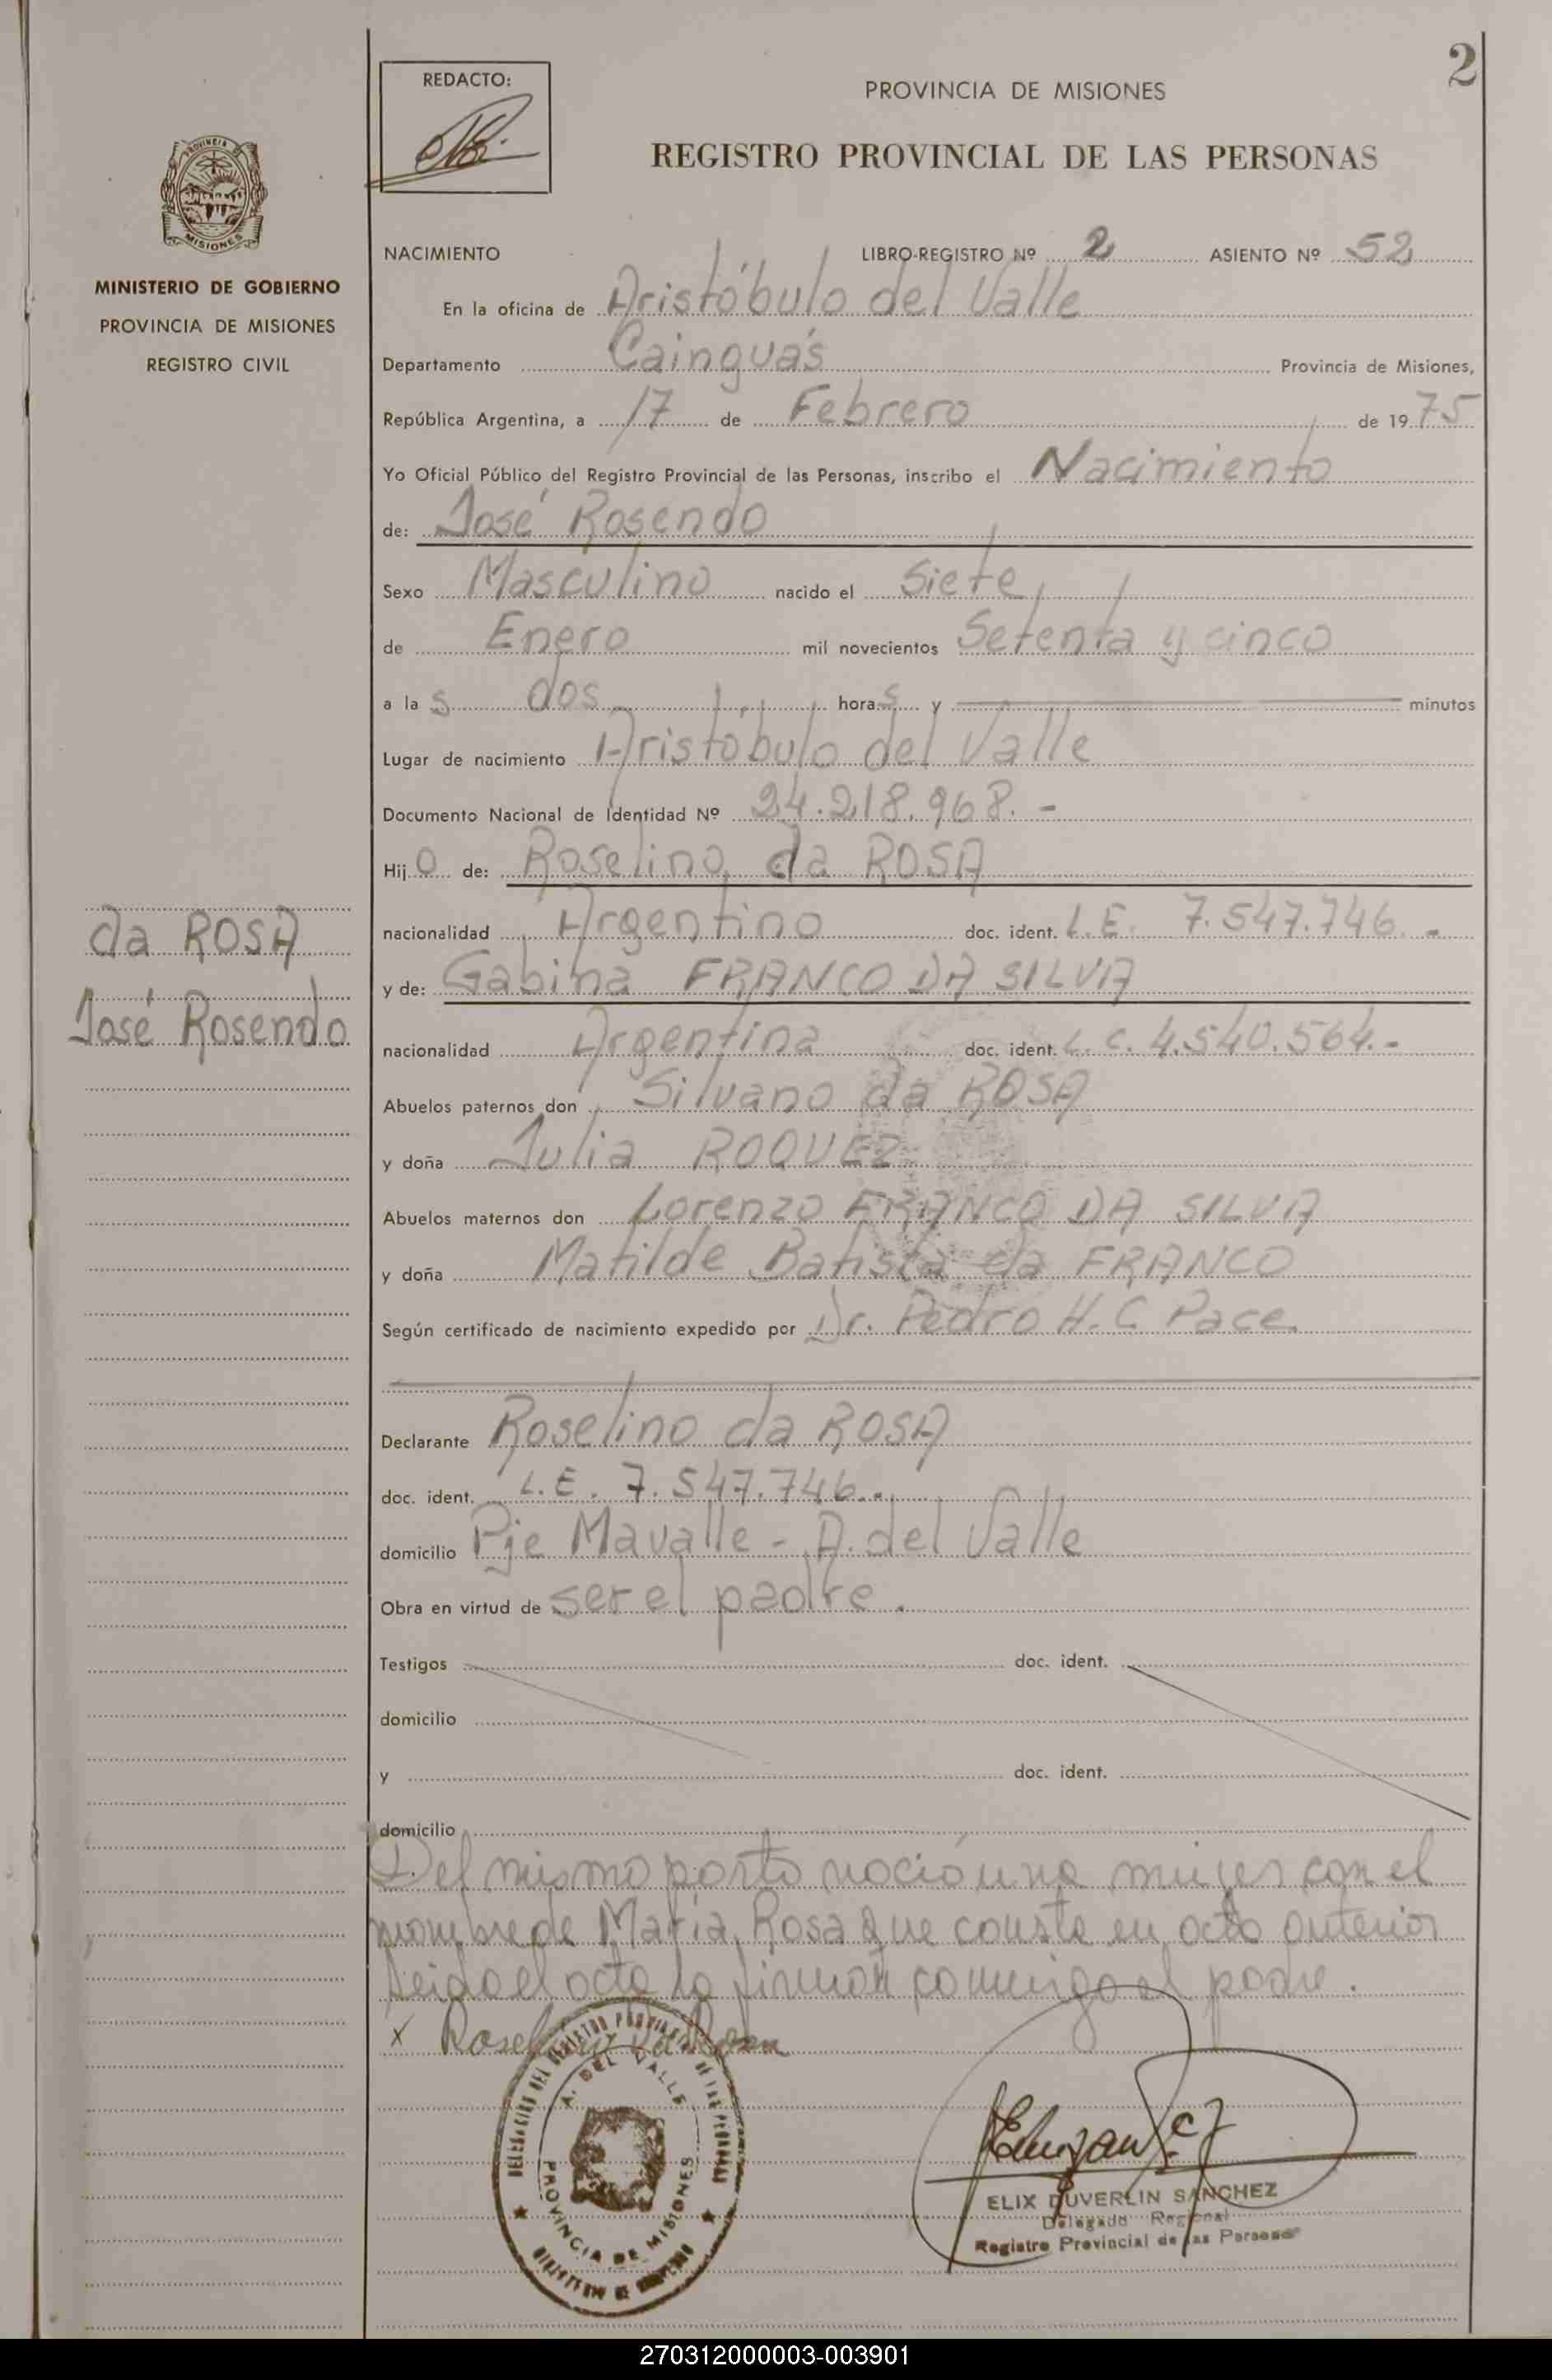 2
REDACTO:
PROVINCIA DE MISIONES
REGISTRO PROVINCIAL DE LAS PERSONAS
PROVINCIA DE
MISIONES
MINISTERIO DE GOBIERNO
PROVINCIA DE MISIONES
REGISTRO CIVIL
NACIMIENTO LIBRO-REGISTRO Nº 2 ASIENTO Nº 52
En la oficina de Aristóbulo del Valle
Departamento Cainguás Provincia de Misiones,
República Argentina, a 17 de Febrero de 1975
Yo Oficial Público del Registro Provincial de las Personas, inscribo el Nacimiento
de: José Rosendo
Sexo Masculino nacido el Siete
de Enero mil novecientos Setenta y cinco
a las dos horas y minutos
Lugar de nacimiento Aristóbulo del Valle
Documento Nacional de Identidad Nº 24.218.968.-
Hijo de: Roselino da ROSA
da ROSA
José Rosendo
nacionalidad Argentino doc. ident. L.E. 7.547.746.-
y de: Gabina FRANCO DA SILVA
nacionalidad Argentina doc. ident. L.C. 4.540.564.-
Abuelos paternos don Silvano da ROSA
y doña Julia ROQUEZ
Abuelos maternos don Lorenzo FRANCO DA SILVA
y doña Matilde Batista da FRANCO
Según certificado de nacimiento expedido por Dr. Pedro H. C. Pace
Declarante Roselino da ROSA
doc. ident. L.E. 7.547.746.-
domicilio Pje Mavalle - A. del Valle
Obra en virtud de ser el padre.
Testigos doc. ident.
domicilio
y doc. ident.
domicilio
Del mismo parto nació una mujer con el
nombre de María Rosa que consta en acto anterior
Leido el acto la firman conmigo el padre.
x Roselino da Rosa
DELEGACION DEL REGISTRO PROVINCIAL DE LAS PERSONAS
A. DEL VALLE
PROVINCIA DE MISIONES
MINISTERIO DE GOBIERNO
ELIX DUVERLIN SANCHEZ
Delegado Regional
Registro Provincial de las Personas
270312000003-003901